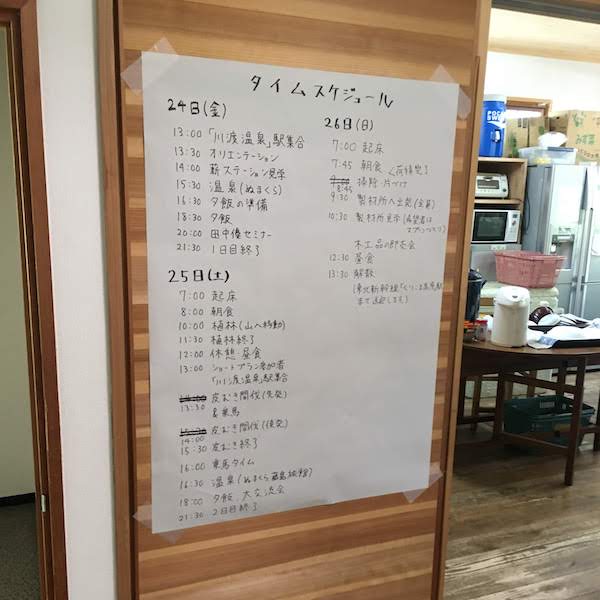 タイムスケジュール
24日(金)
13:00 「川渡温泉」駅集合
13:30 オリエンテーション
14:00 薪ステーション見学
15:30 温泉(ぬまくら)
16:30 夕飯の準備
18:30 夕飯
20:00 田中優セミナー
21:30 1日目終了
25日(土)
7:00 起床
8:00 朝食
10:00 植林(山へ移動)
11:30 植林終了
12:00 休憩・昼食
13:00 ショートプラン参加者
「川渡温泉」駅集合
13:30 皮むき間伐(先発)
乗馬
14:00 皮むき間伐(後発)
15:30 皮むき終了
16:00 乗馬タイム
16:30 温泉(ぬまくら 旅館)
18:00 夕飯、大交流会
21:30 2日目終了
26日(日)
7:00 起床
7:45 朝食
8:45 掃除・片づけ
9:30 製材所へ出発(全員)
10:30 製材所見学(希望者は
木工品の即売会
12:30 昼食
13:30 解散
(東北新幹線「くりこま高原駅
まで送迎します)